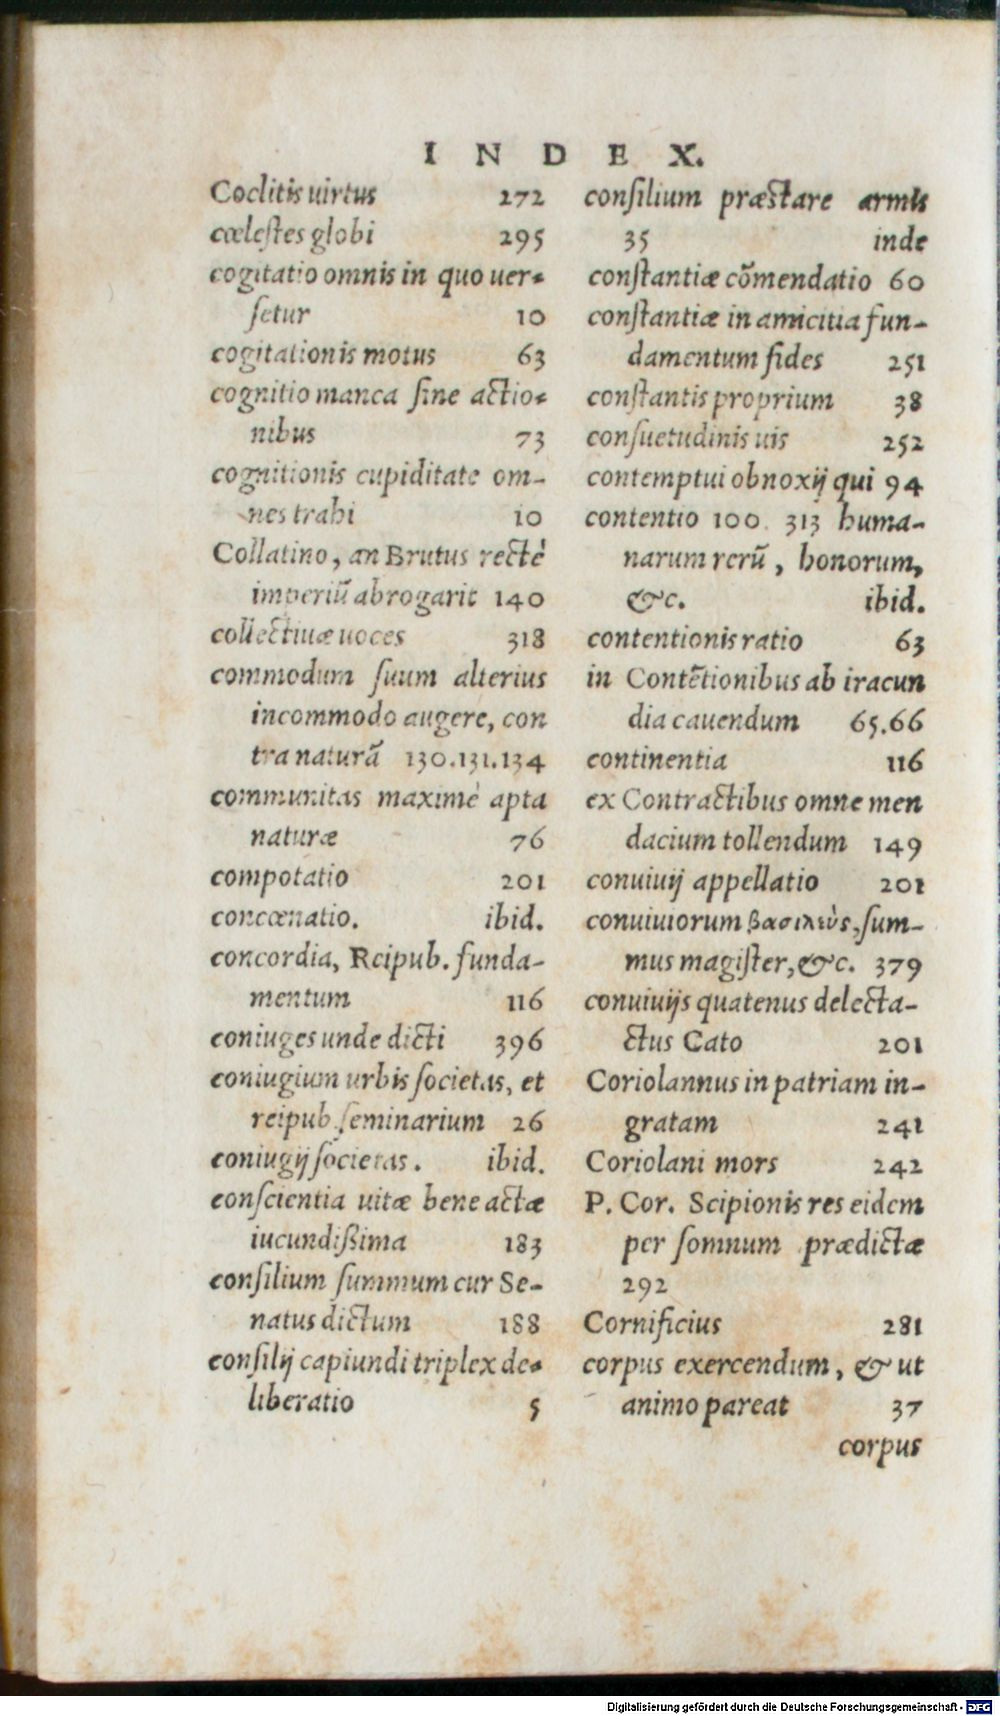 INDEX.
Coclitis uirtus 272
cœlestes globi 295
cogitatio omnis in quo uer-
setur 10
cogitationis motus 63
cognitio manca sine actio-
nibus 73
cognitionis cupiditate om-
nes trahi 10
Collatino, an Brutus rectè
imperiũ abrogarit 140
collectiuæ uoces 318
commodum suum alterius
incommodo augere, con
tra naturã 130.131.134
communitas maximè apta
naturæ 76
compotatio 201
concœnatio. ibid.
concordia, Reipub. funda-
mentum 116
coniuges unde dicti 396
coniugium urbis societas, et
reipub. seminarium 26
coniugij societas. ibid.
conscientia uitæ bene actæ
iucundißima 183
consilium summum cur Se-
natus dictum 188
consilij capiundi triplex de-
liberatio 5
consilium præstare armis
35 inde
constantiæ cõmendatio 60
constantiæ in amicitia fun-
damentum fides 251
constantis proprium 38
consuetudinis uis 252
contemptui obnoxij qui 94
contentio 100. 313 huma-
narum rerũ, honorum,
&c. ibid.
contentionis ratio 63
in Contẽtionibus ab iracun
dia cauendum 65.66
continentia 116
ex Contractibus omne men
dacium tollendum 149
conuiuij appellatio 201
conuiuiorum βασιλεὺς, sum-
mus magister, &c. 379
conuiuijs quatenus delecta-
ctus Cato 201
Coriolannus in patriam in-
gratam 241
Coriolani mors 242
P. Cor. Scipionis res eidem
per somnum prædictæ
292
Cornificius 281
corpus exercendum, & ut
animo pareat 37
corpus
Digitalisierung gefördert durch die Deutsche Forschungsgemeinschaft - DFG